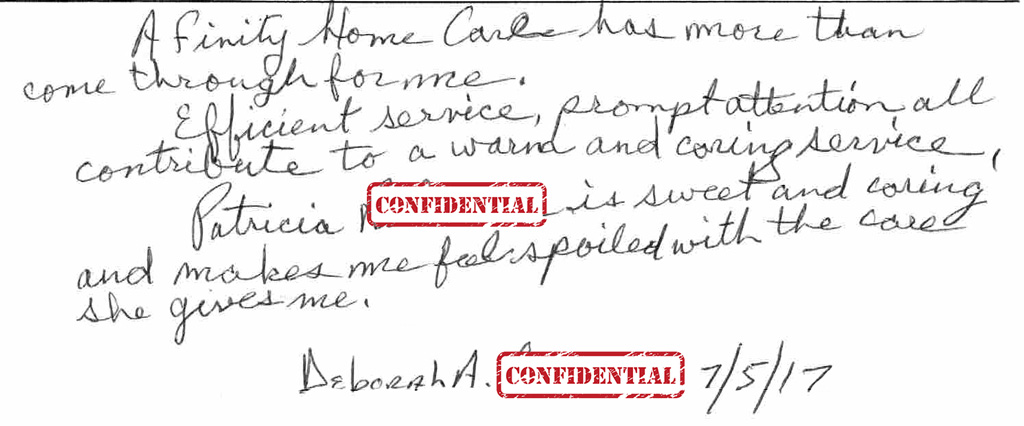 Afinity Home Care has more than
come through for me.
Efficient service, prompt attention, all
contribute to a warm and caring service,
Patricia CONFIDENTIAL is sweet and caring
and makes me feel spoiled with the care
she gives me.
Deborah A. CONFIDENTIAL 7/5/17